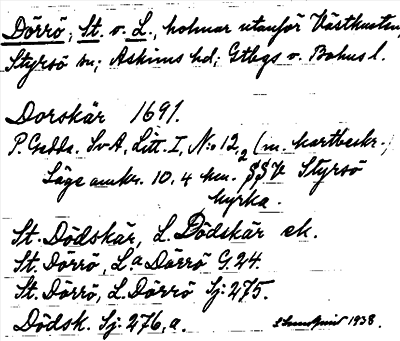 Dörrö, St. o. L., holmar utanför Västkusten,
Styrsö sn; Askims hd; Gtbgs o. Bohus l.
Dorskär 1691.
P. Gedda. SvA, Litt. I, No 12, 2 (m. kartbeskr.,
Läge omkr. 10,4 km. SSV Styrsö
kyrka.
St. Dödskär, L. Dödskär ek.
St. Dörrö, L:a Dörrö G. 24.
St. Dörrö, L. Dörrö Sj: 275.
Dödsk. Sj: 276, a. 1938.